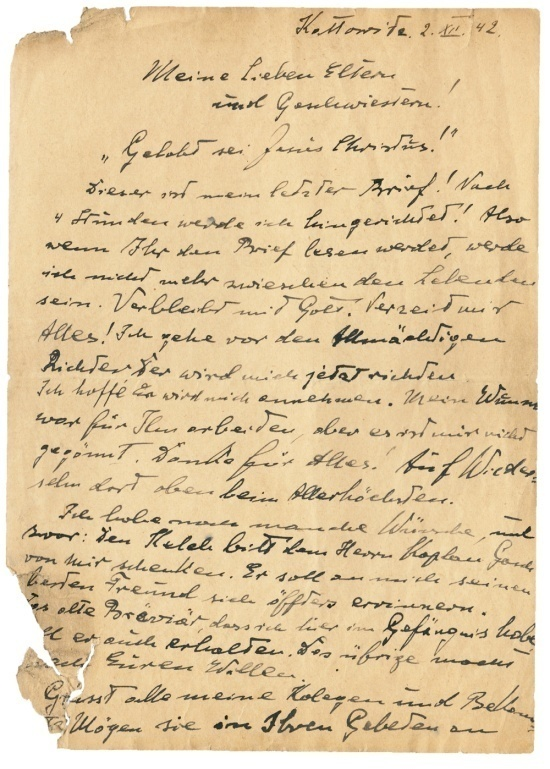 Kattowitz. 2. XII. 42.
Meine Lieben Eltern
und Geschwiestern!
„Gelobt sei Jesus Christus!"
Dieser ist mein letzter Brief! Nach
4 Stunden werde ich hingerichtet! Also
wenn Ihr den Brief lesen werdet, werde
ich nicht mehr zwieschen den Lebenden
sein. Verbleibt mit Gott. Verzeit mir
Alles! Ich gehe vor den Allmächtigen
Richter Der wird mich jetzt richten
Ich hoffe Er wird mich annehmen. Mein Wunsch
war für Ihm arbeiden, aber es ist mir nicht
gegönnt. Danke für Alles! Auf Wieder-
sehn dort oben beim Allerhöchsten.
Ich habe noch manche Wünsche, und
zwar: Den Kelch bitt dem Herrn Kaplan
von mir schenken. Er soll an mich seinen
Freund sich öffters erwinnern.
alte Breviär dass ich hier im Gefängnis habe
er auch erhalden. Das übrige macht
nach Euren Willen.
Grüsst alle meine Kolegen und
Mögen sie in Ihren Gebeden an